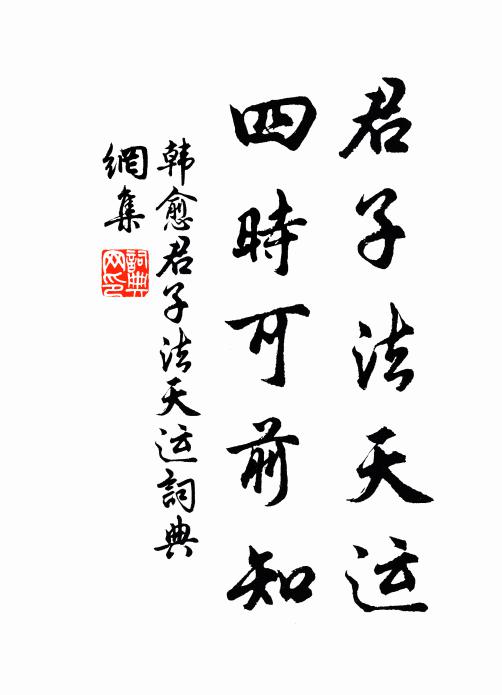 君子法天运
四時可前知
韩愈君子法天运詞典
網集
詞典
网印